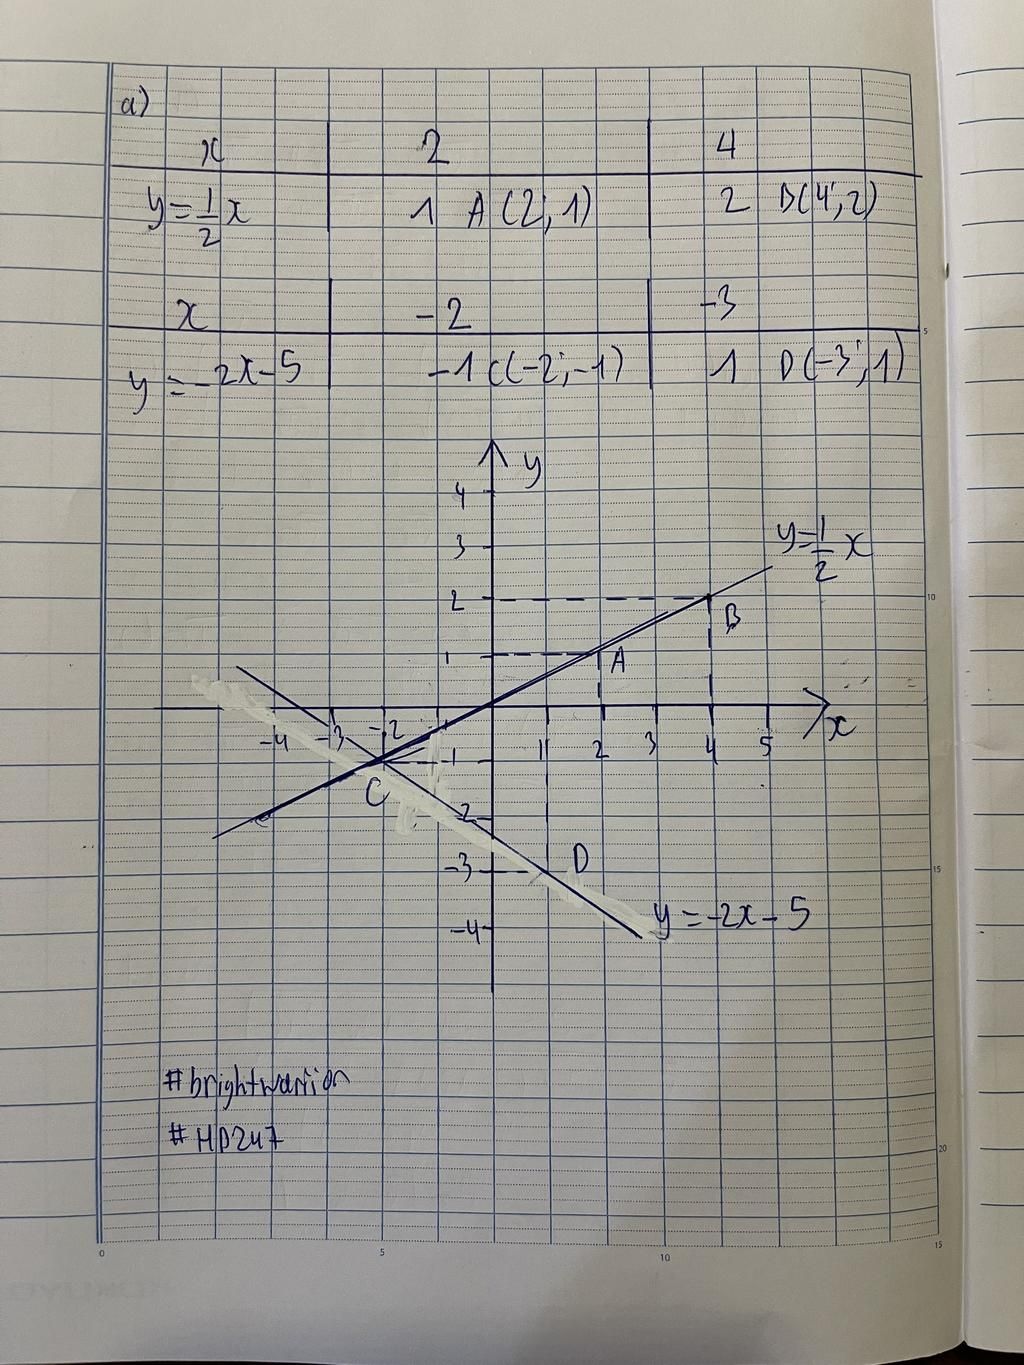 a)
x 2 4
y = 1/2 x 1 A(2; 1) 2 B(4; 2)
x -2 -3
y = -2x - 5 -1 C(-2; -1) 1 D(-3; 1)
y
4
3
y = 1/2 x
2
B
1
A
x
-4 -3 -2 -1 1 2 3 4 5
-1
C
-2
D
-3
y = -2x - 5
-4
#brightwarrior
#HD247
0 5 10 15
5
10
15
20